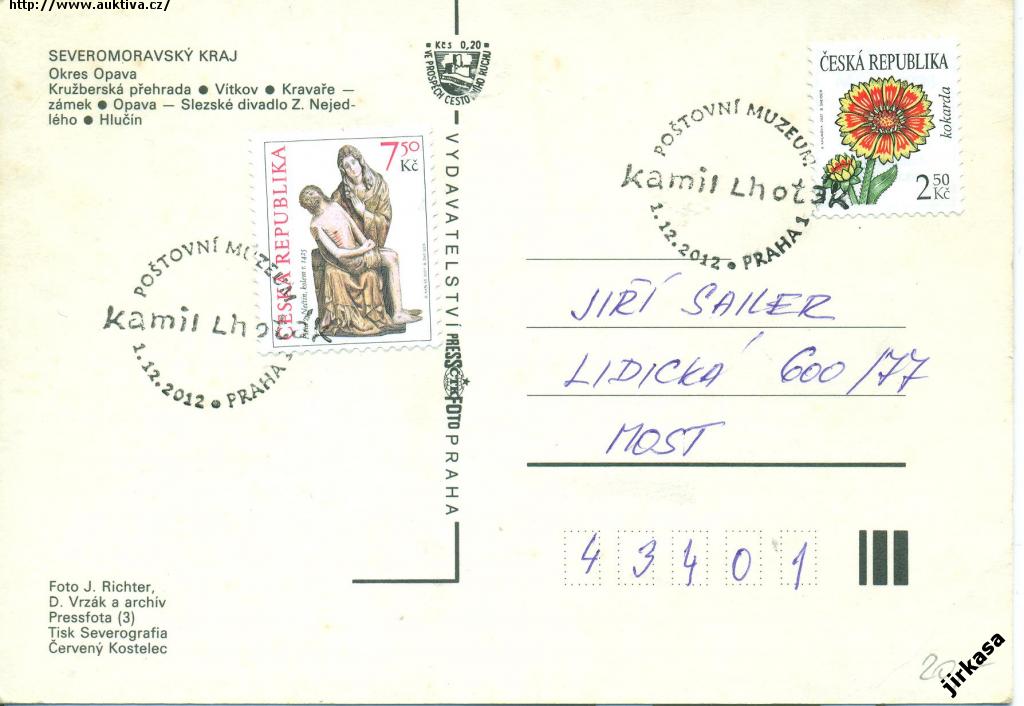 http://www.auktiva.cz/
SEVEROMORAVSKÝ KRAJ
Okres Opava
Kružberská přehrada ● Vítkov ● Kravaře —
zámek ● Opava — Slezské divadlo Z. Nejed-
lého ● Hlučín
Kčs 0,20
VE PROSPĚCH CESTOVNÍHO RUCHU
VYDAVATELSTVÍ PRESSFOTO PRAHA
ČTK
7,50 Kč
ČESKÁ REPUBLIKA
kolem r. 1425
POŠTOVNÍ MUZEUM
Kamil Lhoták
1.12.2012 ● PRAHA 1
ČESKÁ REPUBLIKA
kokarda
2,50 Kč
POŠTOVNÍ MUZEUM
Kamil Lhoták
1.12.2012 ● PRAHA 1
JIŘÍ SAILER
LIDICKÁ 600/77
MOST
43401
Foto J. Richter,
D. Vrzák a archív
Pressfota (3)
Tisk Severografia
Červený Kostelec
jirkasa